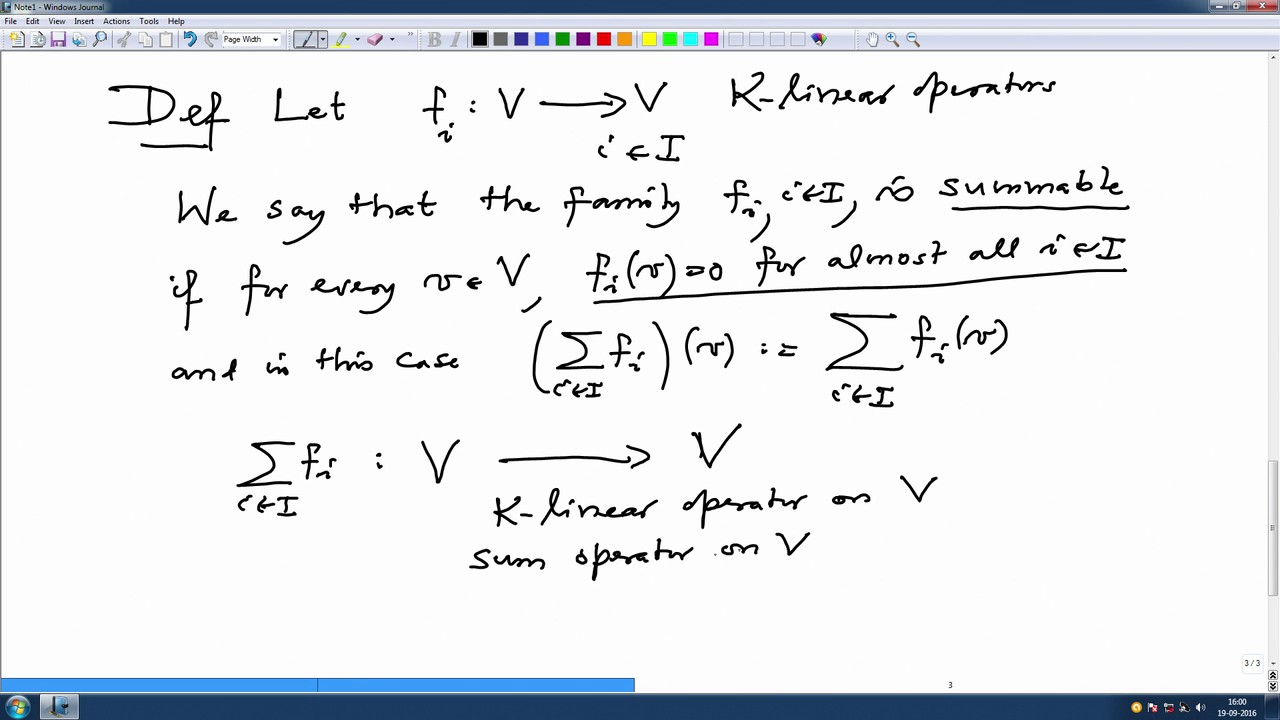 Note1 - Windows Journal
File Edit View Insert Actions Tools Help
Page Width
B I
Def Let f_i : V ⟶ V K-linear operators
i ∈ I
We say that the family f_i, i∈I, is summable
if for every v ∈ V, f_i(v)=0 for almost all i∈I
and in this case (∑_{i∈I} f_i)(v) := ∑_{i∈I} f_i(v)
∑_{i∈I} f_i : V ⟶ V
K-linear operator on V
sum operator on V
3 / 3
3
16:00
19-09-2016